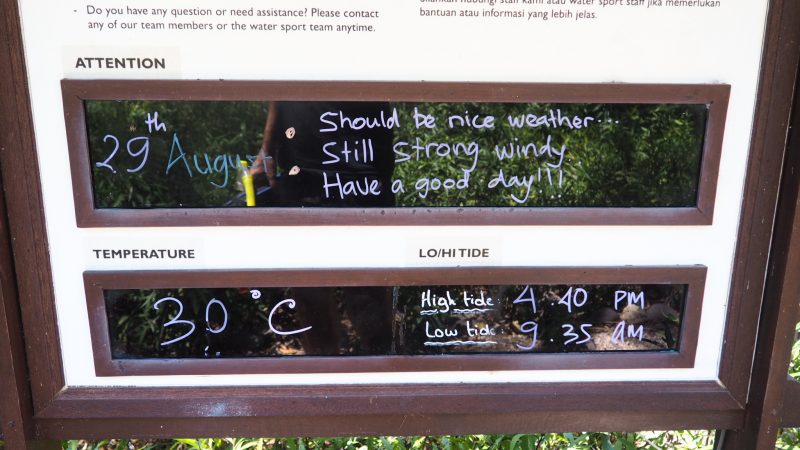 - Do you have any question or need assistance? Please contact
any of our team members or the water sport team anytime.
silahkan hubungi staff kami atau water sport staff jika memerlukan
bantuan atau informasi yang lebih jelas.
ATTENTION
29th August
Should be nice weather...
Still strong windy
Have a good day!!!
TEMPERATURE
30°C
LO/HI TIDE
High tide: 4.40 PM
Low tide: 9.35 am